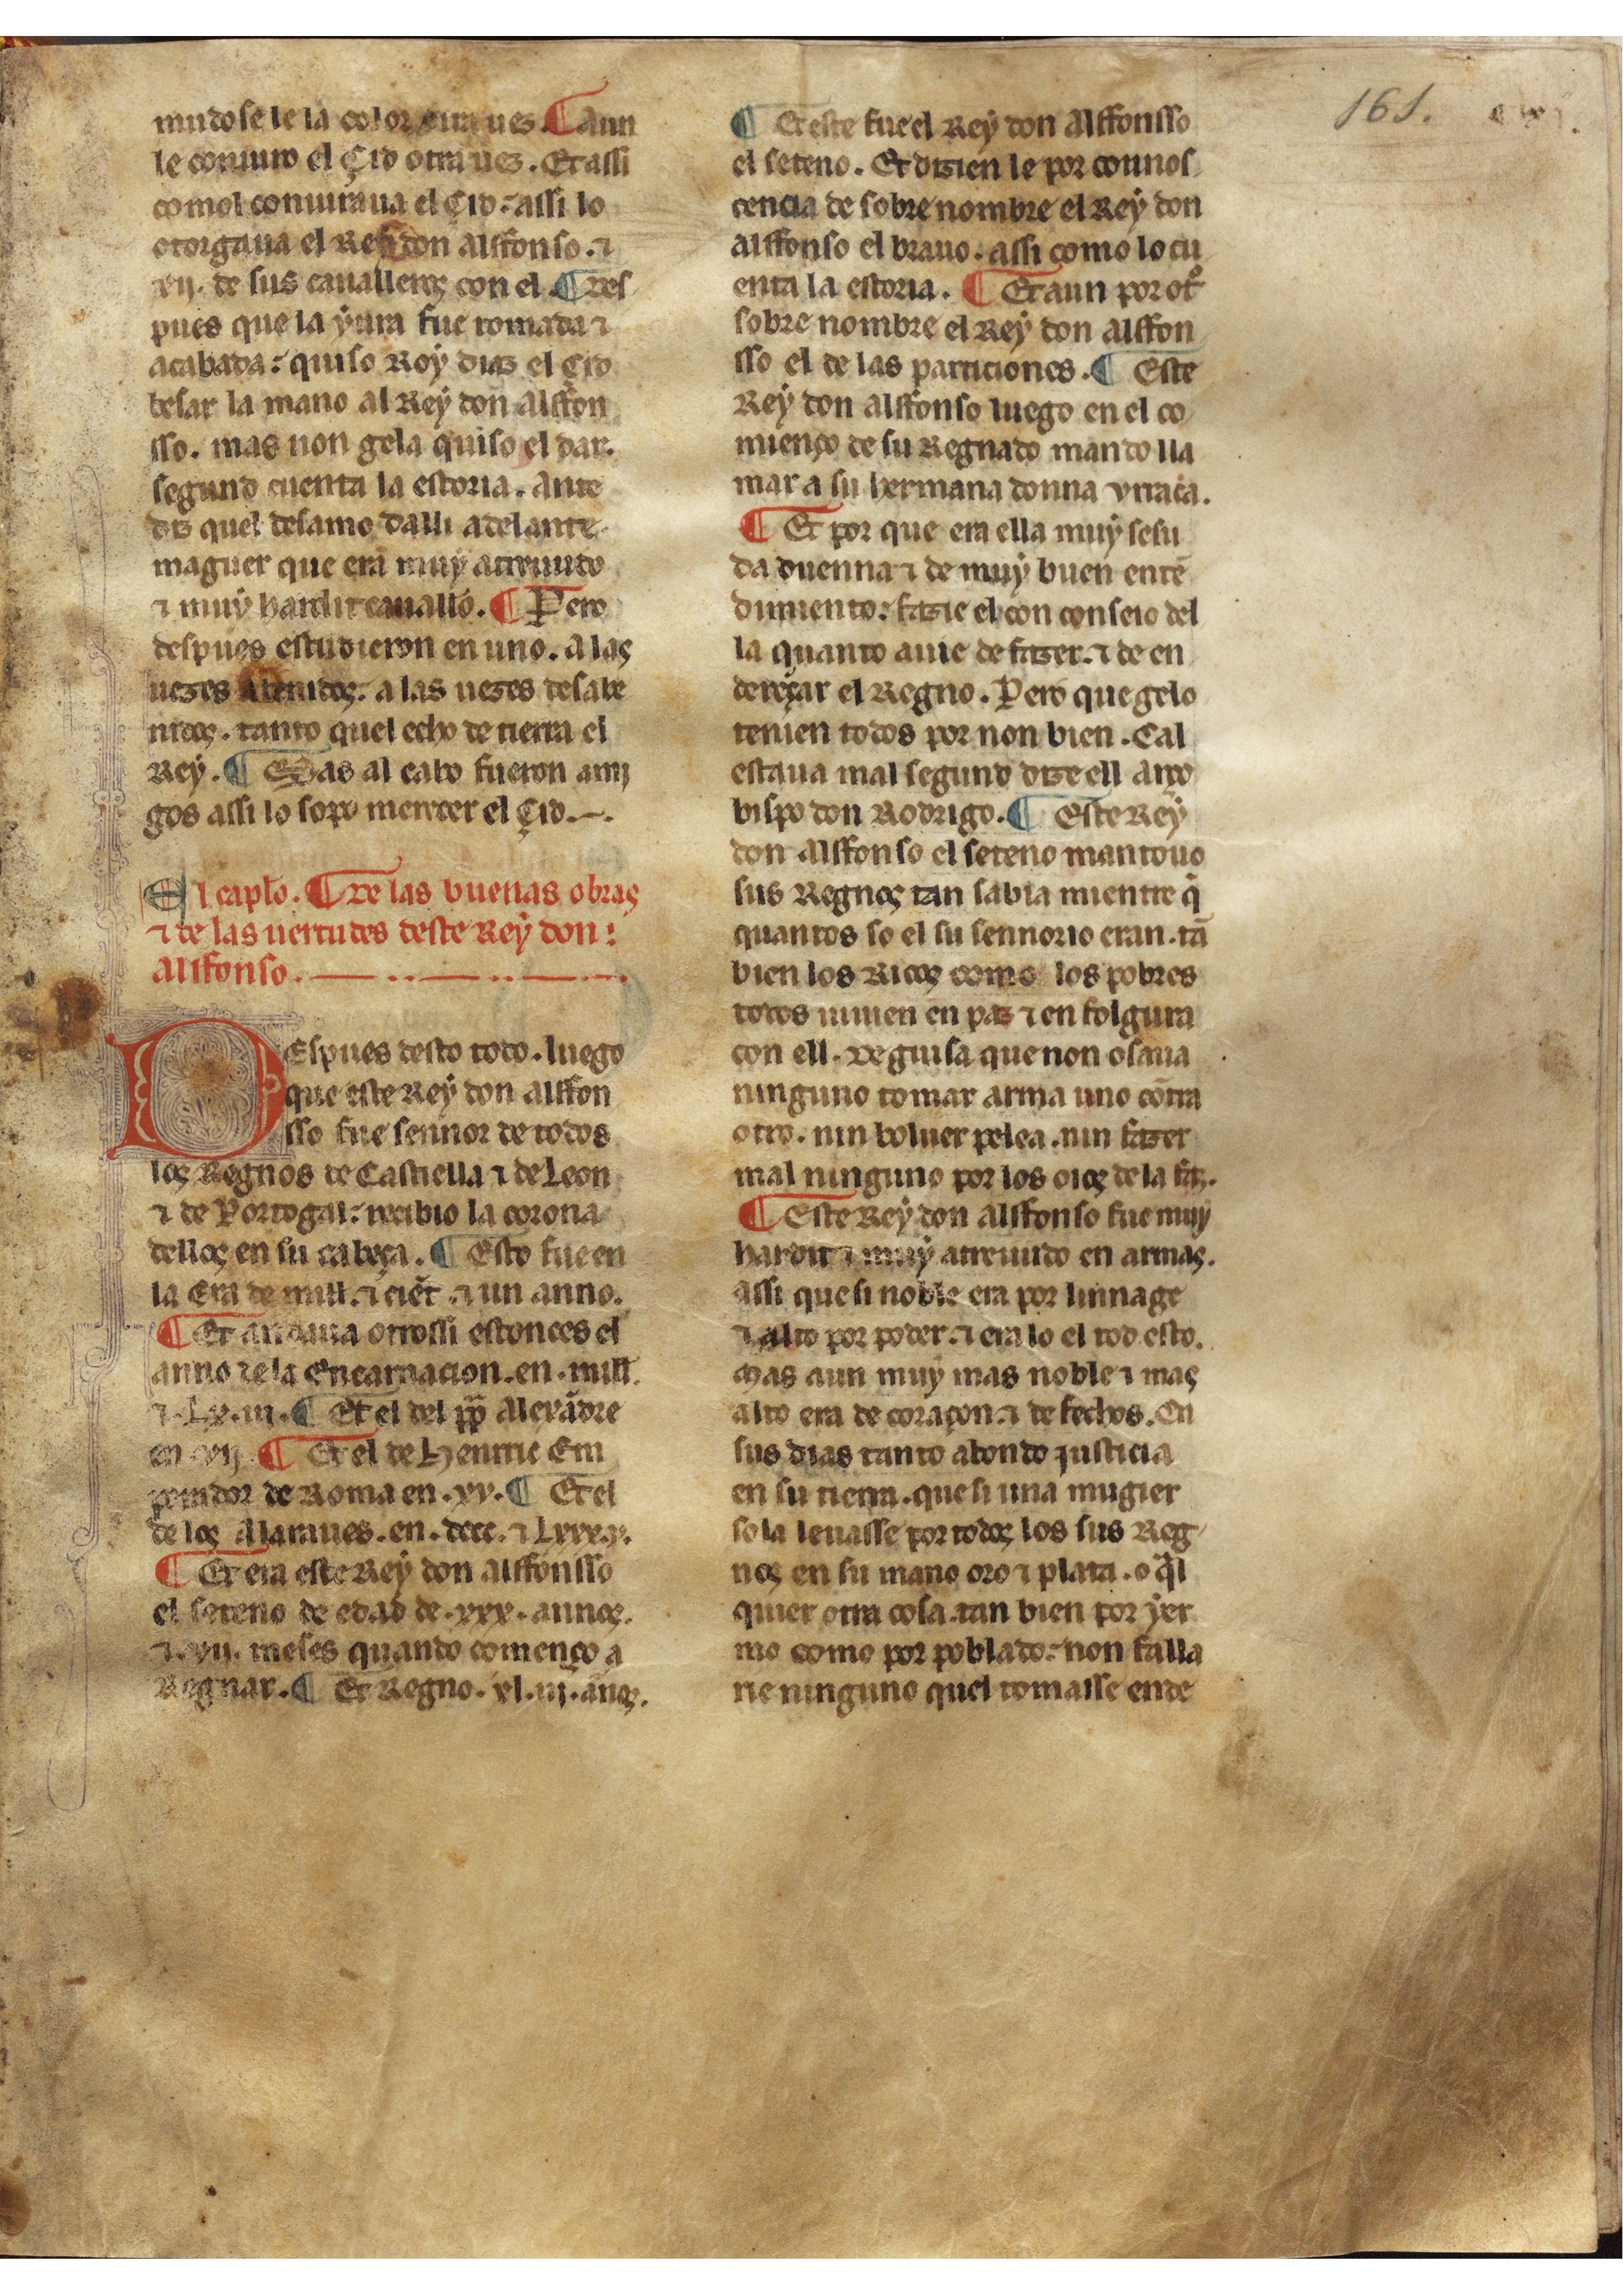 mudosele la color otra uez. ¶ Aun
le coniuro el Çid otra uez. Et assi
comol coniuraua el Çid: assi lo
otorgaua el Rey don Alffonso. ⁊
xij. de sus caualleros con el. ¶ Des
pues que la yura fue tomada ⁊
acabada: quiso Roy diaz el Çid
besar la mano al Rey don Alffon
sso. mas non gela quiso el dar.
segund cuenta la estoria. Ante
diz quel desamo dalli adelante
maguer que era muy atreuudo
⁊ muy hardit cauallo. ¶ Pero
despues estudieron en uno. a las
uezes abenidos: a las uezes desabe
nidos. tanto quel echo de tierra el
Rey. ¶ Mas al cabo fueron ami
gos assi lo sopo merecer el Çid.
El caplo. ¶ De las buenas obras
⁊ de las uertudes deste Rey don:
Alffonso.
Despues desto todo. luego
que este Rey don Alffon
sso fue sennor de todos
los Regnos de Castiella ⁊ de Leon
⁊ de Portogal: recibio la corona
dellos en su cabeça. ¶ Esto fue en
la Era de mill. ⁊ ciēt. ⁊ un anno.
¶ Et andaua otrossi estonces el
anno de la Encarnacion. en. mill.
⁊. Lx. iij. ¶ Et el del pp̄ Alexādre
en. xij. ¶ Et el de Henrric Em
perador de Roma en. xv. ¶ Et el
de los Alaraues. en. dccc. ⁊ Lxxx.
¶ Et era este Rey don Alffonsso
el seteno de edad de. xxx. annos.
⁊. vij. meses quando começo a
Regnar. ¶ Et Regno. xl. iij. ānos.
¶ Et este fue el Rey don Alffonsso
el seteno. Et dizien le por connos
cencia de sobre nombre el Rey don
Alffonso el brauo. assi como lo cu
enta la estoria. ¶ Et aun por otº
sobre nombre el Rey don Alffon
sso el de las particiones. ¶ Este
Rey don Alffonso luego en el co
mienço de su Regnado mando lla
mar a su hermana donna Vrraca.
¶ Et por que era ella muy sesu
da duenna ⁊ de muy buen entē
dimiento: fazie el con conseio del
la quanto auie de fazer. ⁊ de en
dereçar el Regno. Pero que gelo
tenien todos por non bien. Cal
estaua mal segund dize ell Arço
bispo don Rodrigo. ¶ Este Rey
don Alffonso el seteno mantouo
sus Regnos tan sabia mientre q̄
quantos so el su sennorio eran. tā
bien los Ricos como los pobres
todos uiuien en paz ⁊ en folgura
con ell. De guisa que non osaua
ninguno tomar arma uno cōtra
otro. nin boluer pelea. nin fazer
mal ninguno por los oios de la faz.
¶ Este Rey don Alffonso fue muy
hardit ⁊ muy atreuudo en armas.
assi que si noble era por linnage
⁊ alto por poder. ⁊ era lo el tod esto.
Mas aun muy mas noble ⁊ mas
alto era de coraçon. ⁊ de fechos. En
sus dias tanto abondo justicia
en su tierra. que si una mugier
sola leuasse por todos los sus Reg
nos en su mano oro ⁊ plata. o q̄l
quier otra cosa. tan bien por yer
mo como por poblado: non falla
rie ninguno quel tomasse ende
161.